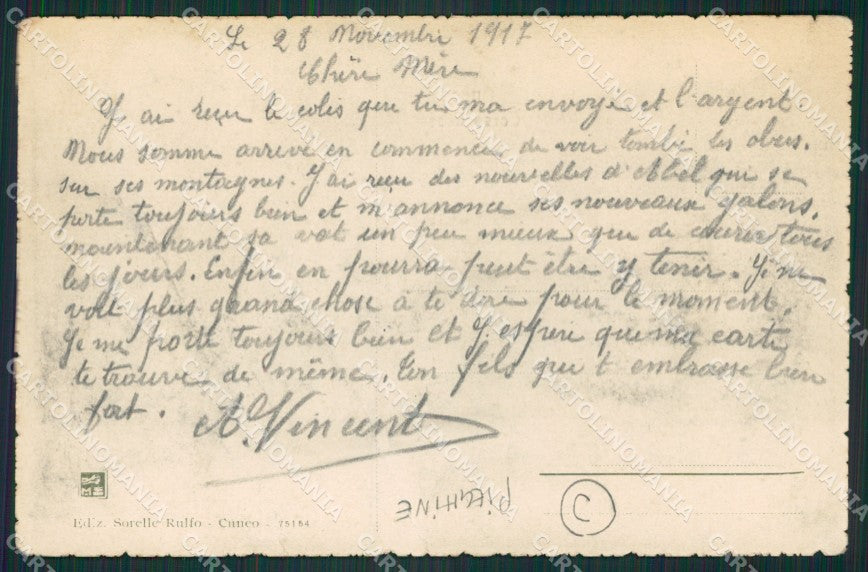 Le 28 Novembre 1917
Chère Mère
J ai reçu le colis que tu ma envoye et l'argent.
Nous somme arrive en commence de voir tombé les obus.
sur ses montagnes. J'ai reçu des nouvelles d'Abel qui se
porte toujours bien et m'annonce ses nouveaux galons.
maintenant sa vat un peu mieux que de courir tous
les jours. Enfin en pourra peut être y tenir. Je ne
voit plus grand chose à te dire pour le moment.
Je me porte toujours bien et J'espère que ma carte
te trouve de même. Ton fils que t embrasse bien
fort. A. Vincent
EdEz. Sorelle Ruffo - Cuneo - 75184
C